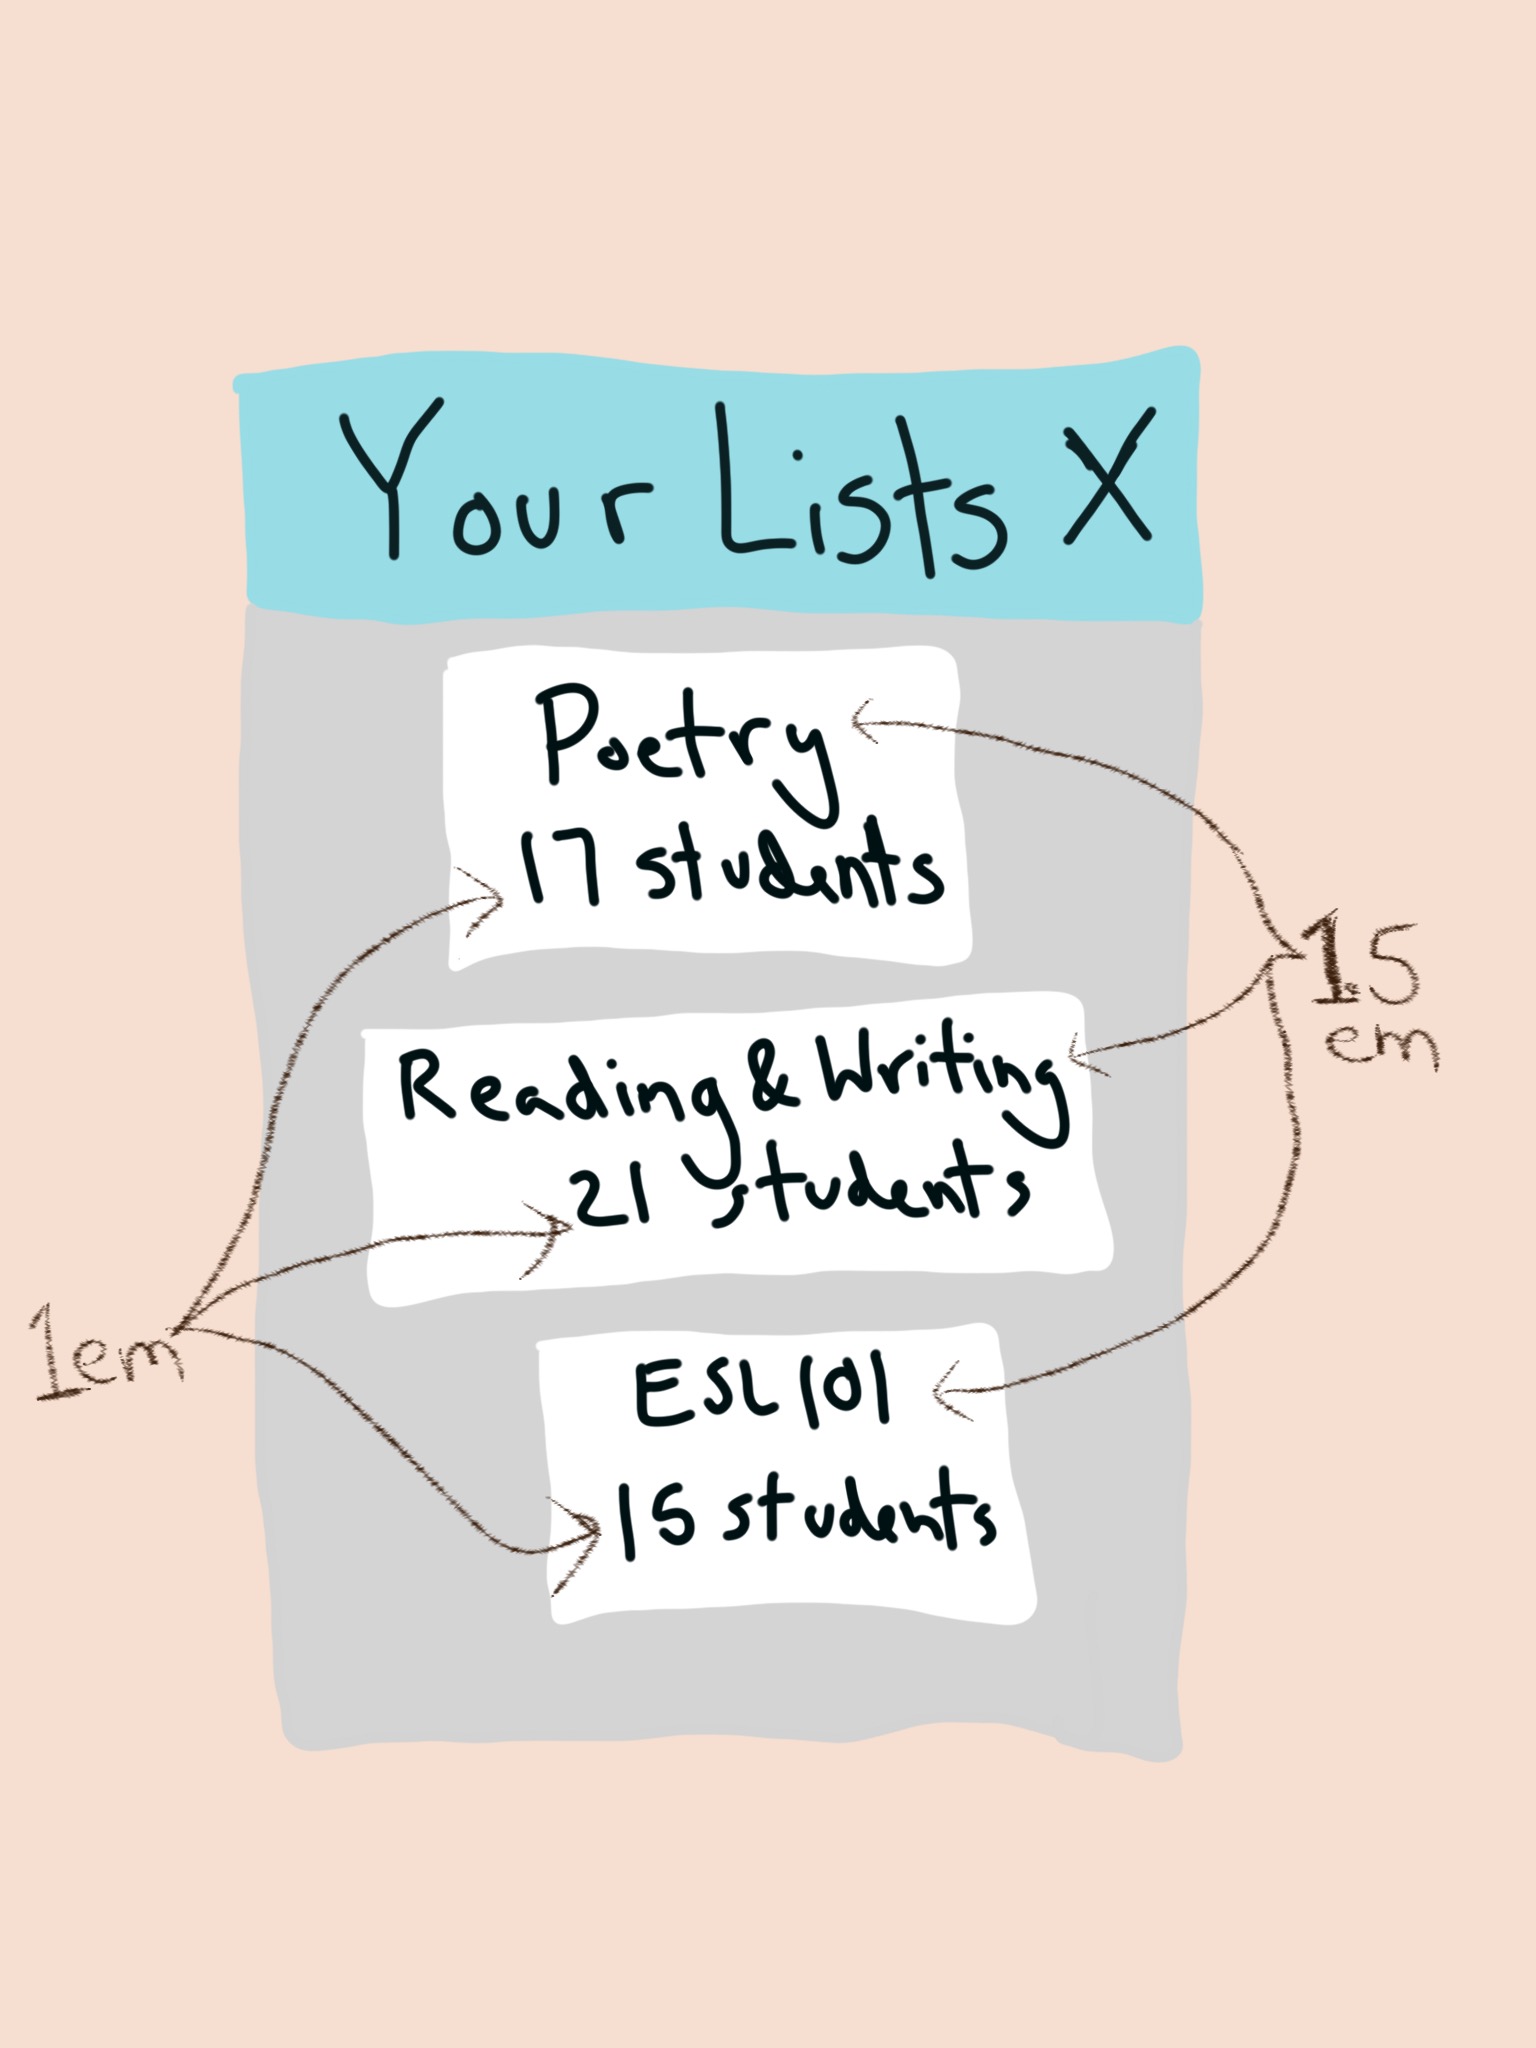 Your Lists X
Poetry
17 students
Reading & Writing
21 students
ESL 101
15 students
1em
1.5
em